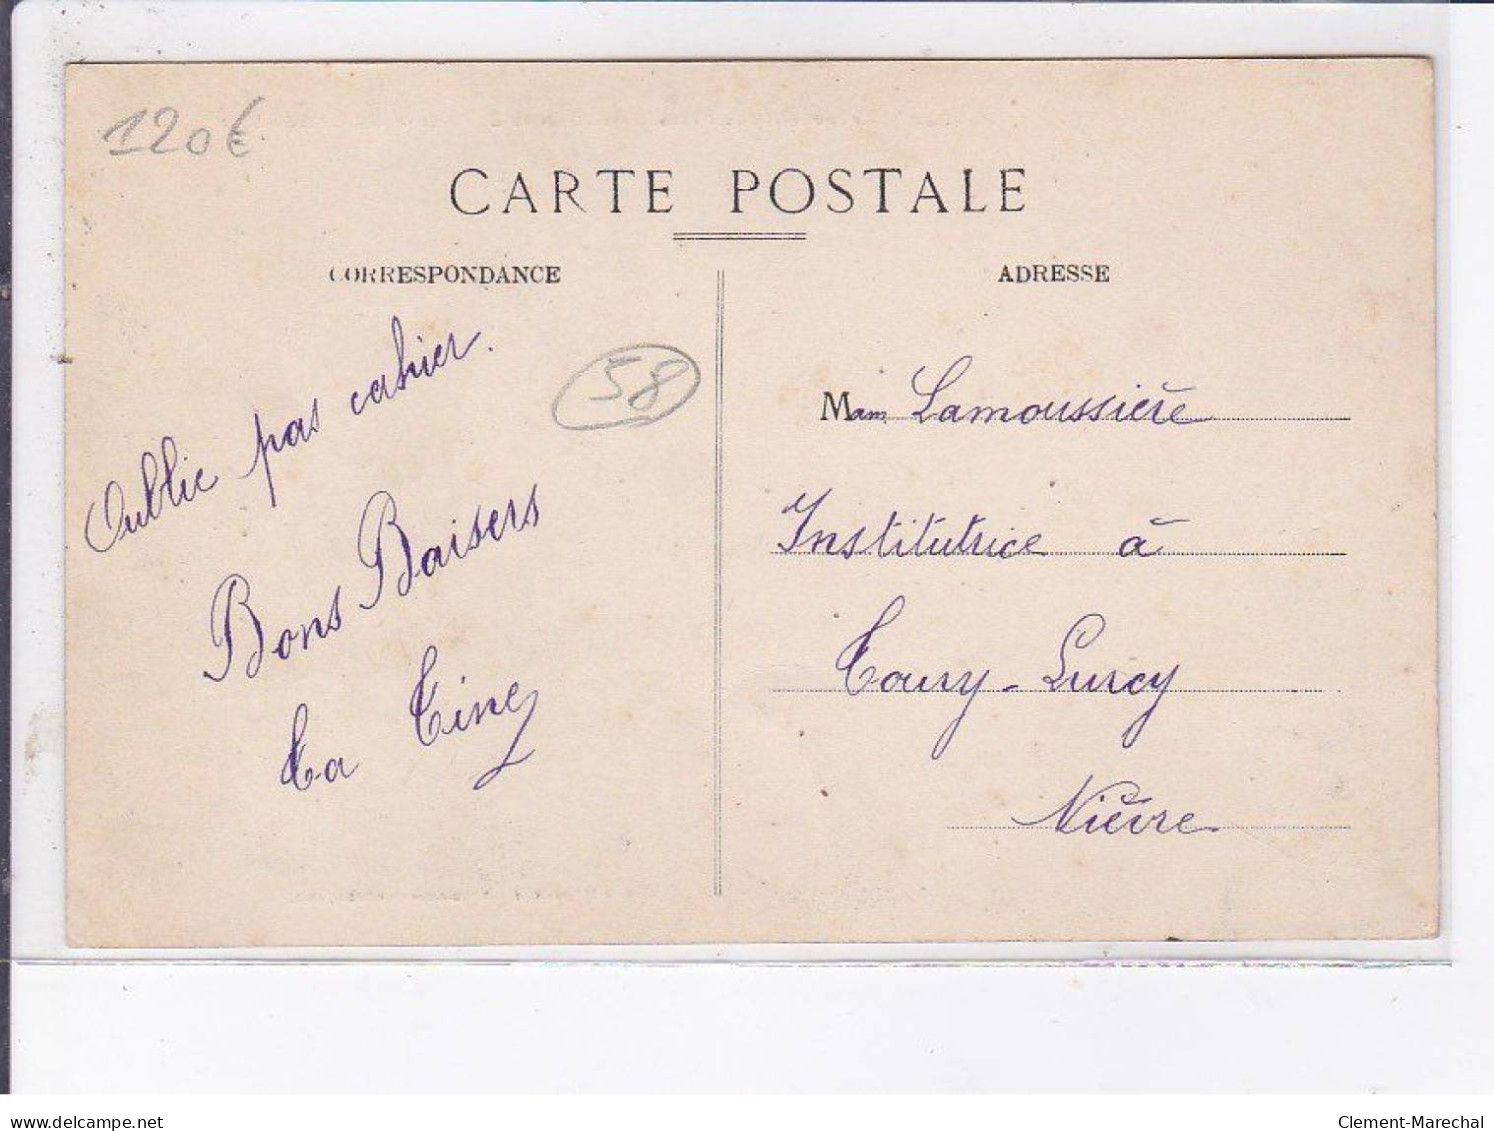 120€
CARTE POSTALE
CORRESPONDANCE
ADRESSE
58
Oublie pas cahier.
Bons Baisers
Ta Tine
Mam Lamoussière
Institutrice à
Toury-Lurcy
Nièvre
www.delcampe.net
Clement-Marechal